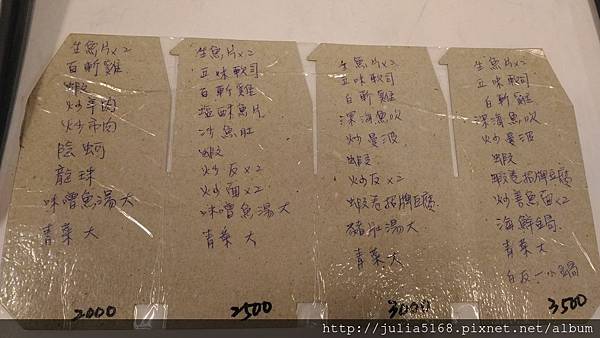 生魚片x2
白斬雞
蝦
炒羊肉
炒牛肉
陰蚵
龍珠
味噌魚湯大
青菜大
2000
生魚片x2
五味軟司
白斬雞
塩酥魚片
沙魚肚
蝦
炒反x2
炒面x2
味噌魚湯大
青菜大
2500
生魚片x2
五味軟司
白斬雞
深海魚吹
炒曼波
蝦
炒反x2
蝦卷招牌豆腐
豬肚湯大
青菜大
3000
生魚片x2
五味軟司
白斬雞
深海魚吹
炒曼波
蝦
蝦卷招牌豆腐
炒善魚面x2
海鮮鍋
青菜大
白反一小鍋
3500
http://julia5168.pixnet.net/album